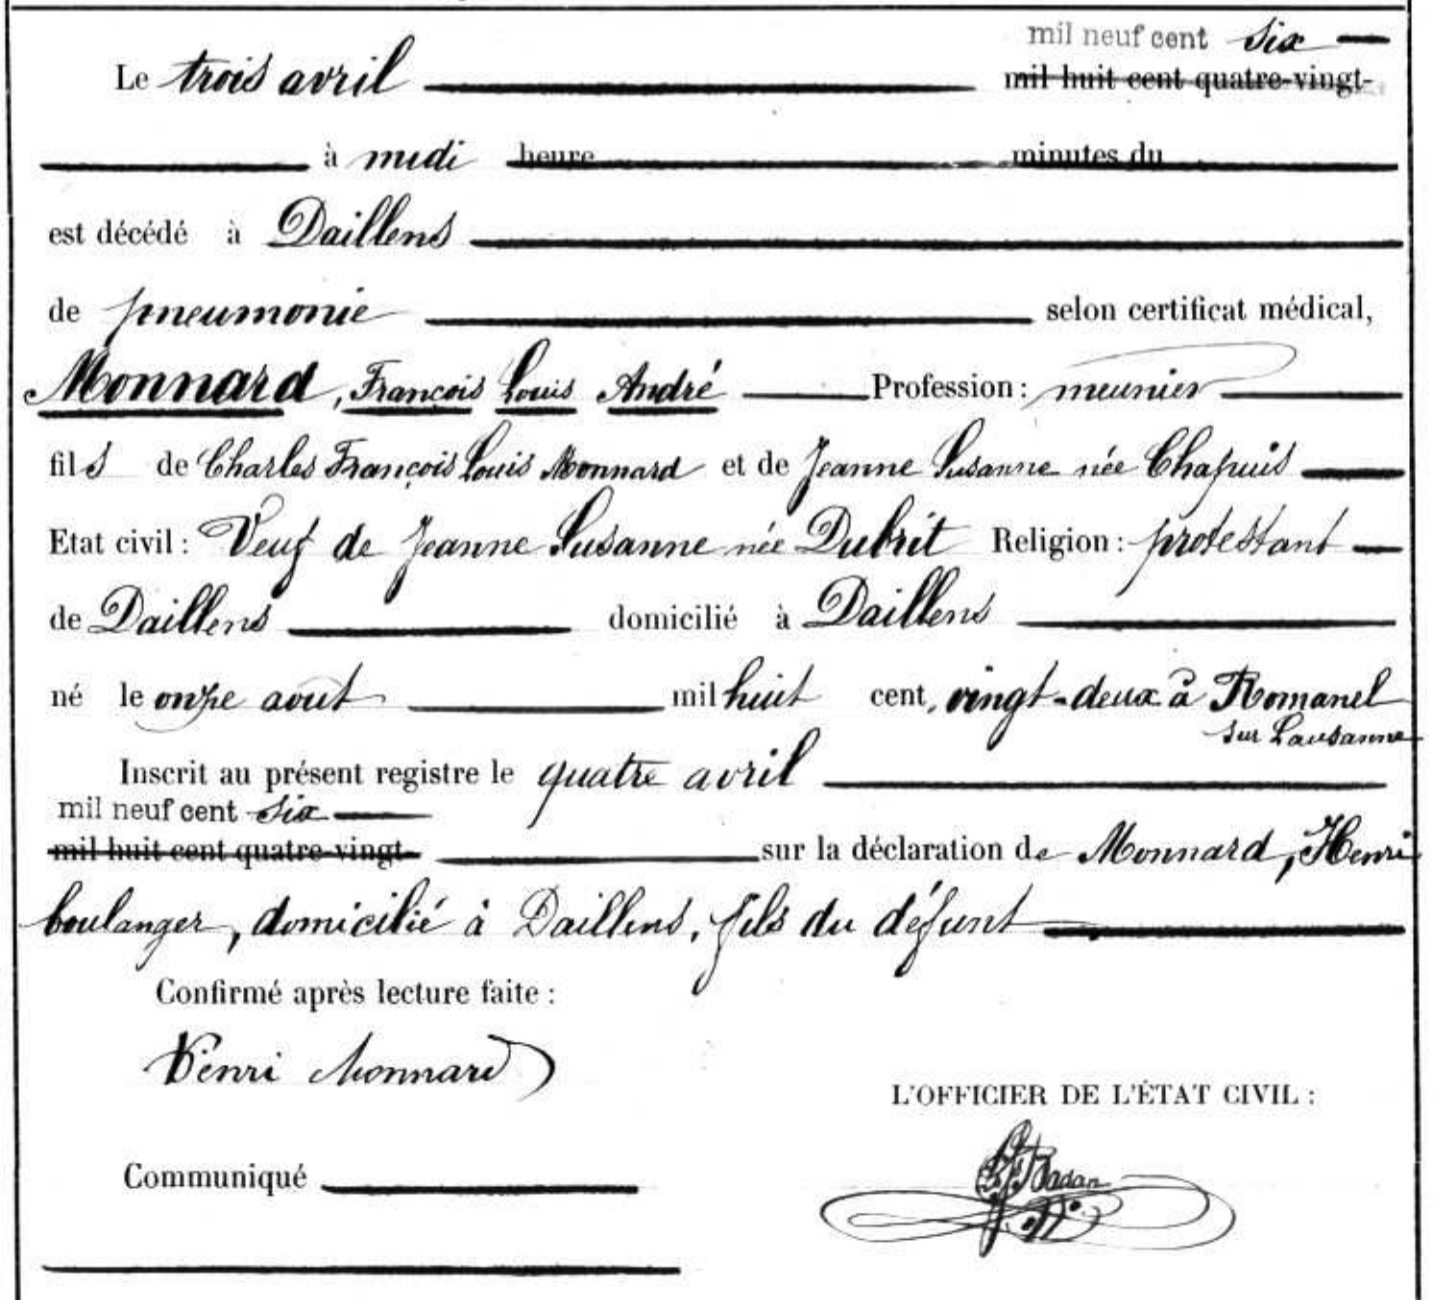 mil neuf cent six
Le trois avril mil huit cent quatre-vingt-
à midi heure minutes du
est décédé à Daillens
de pneumonie selon certificat médical,
Monnard, François Louis André Profession : meunier
fils de Charles François Louis Monnard et de Jeanne Susanne née Chapuis
Etat civil : Veuf de Jeanne Susanne née Dubrit Religion : protestant
de Daillens domicilié à Daillens
né le onze aout mil huit cent, vingt-deux à Romanel
sur Lausanne
Inscrit au présent registre le quatre avril
mil neuf cent six
mil huit cent quatre-vingt- sur la déclaration de Monnard, Henri
boulanger, domicilié à Daillens, fils du défunt
Confirmé après lecture faite :
Henri Monnard
L'OFFICIER DE L'ÉTAT CIVIL :
Badan
Communiqué